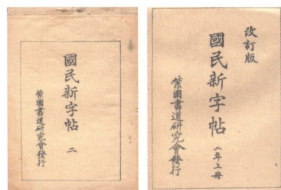 國民新字帖 二
紫園書道研究會發行
改訂版
國民新字帖 二年上冊
紫園書道研究會發行